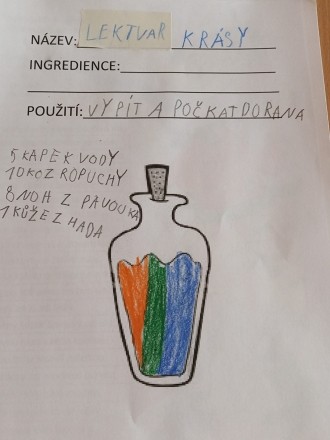 NÁZEV: LEKTVAR KRÁSY
INGREDIENCE:
POUŽITÍ: VYPÍT A POČKAT DO RANA
5 KAPEK VODY
10 KOZ ROPUCHY
8 NOH Z PAVOUKA
1 KŮŽE Z HADA